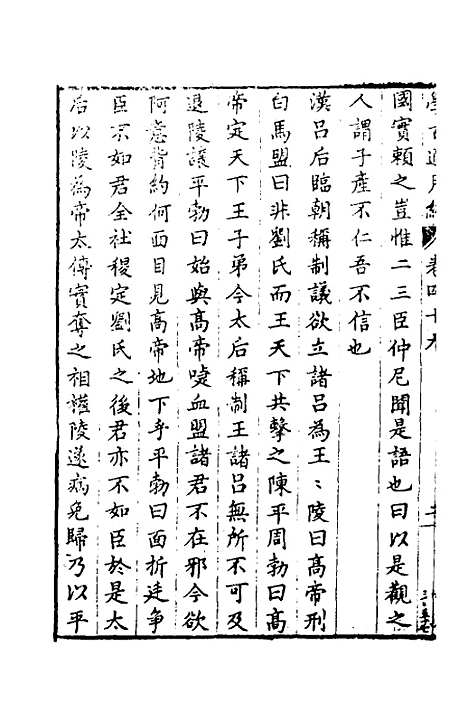 學古適用編 卷四十九
國實賴之豈惟二三臣仲尼聞是語也曰以是觀之
人謂子產不仁吾不信也
漢呂后臨朝稱制議欲立諸呂為王〻陵曰高帝刑
白馬盟曰非劉氏而王天下共擊之陳平周勃曰高
帝定天下王子弟今太后稱制王諸呂無所不可及
退陵讓平勃曰始與高帝啑血盟諸君不在邪今欲
阿意背約何面目見高帝地下乎平勃曰面折廷爭
臣不如君全社稷定劉氏之後君亦不如臣於是太
后以陵為帝太傅實奪之相讓陵遂病免歸乃以平